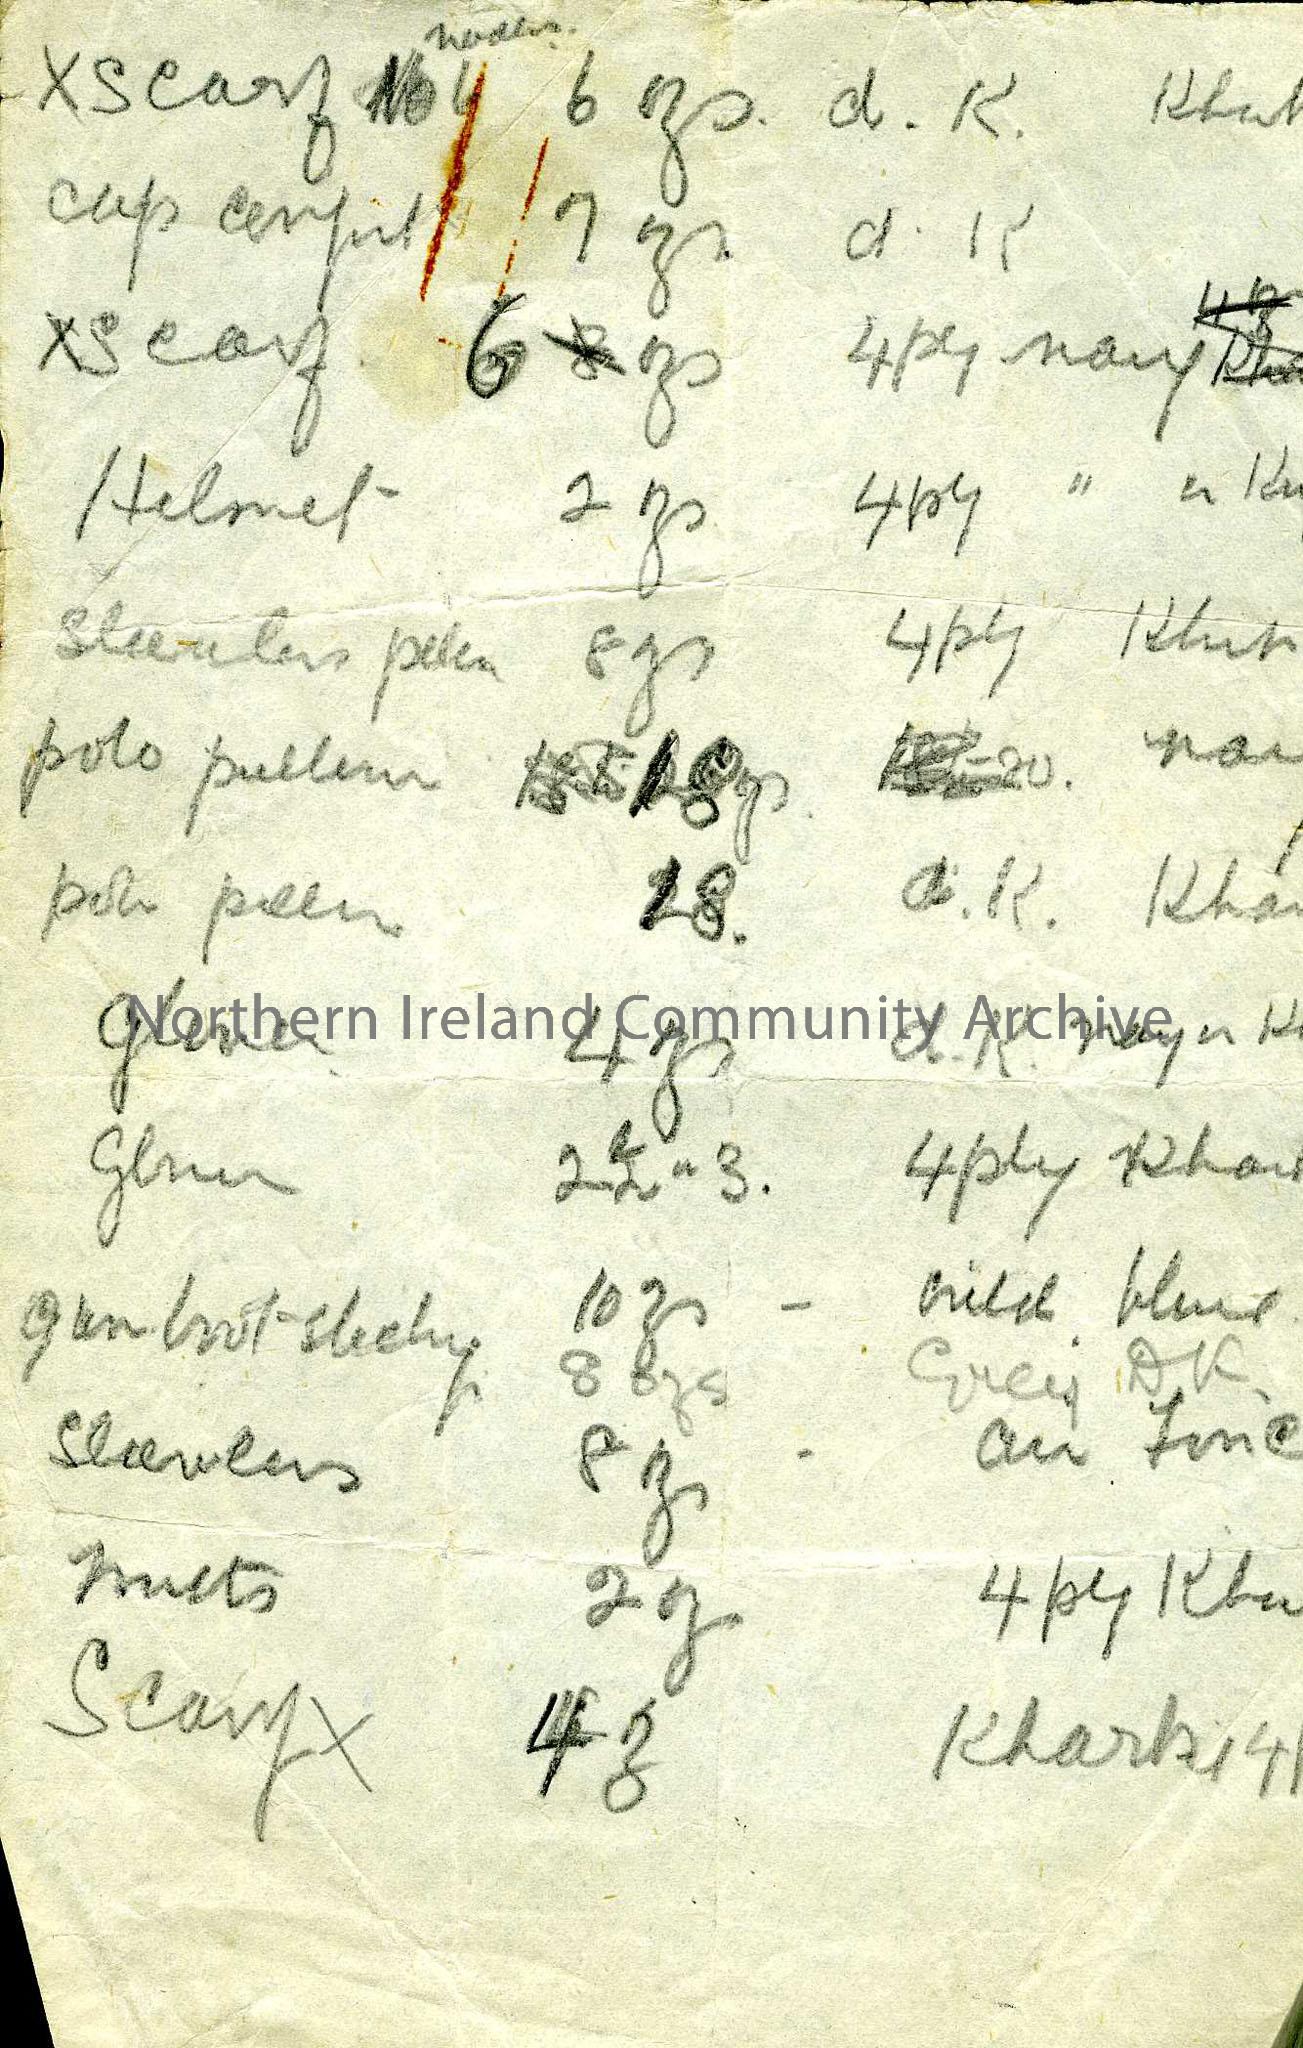 X Scarf No 6 6 ozs. d. K. Kha
cap 7 ozs. d. K
X Scarf 6 8 ozs 4ply navy
Helmet 2 ozs 4ply " or Kh
Sleeveless 8 ozs 4ply Kha
polo pullover 18 ozs. 20. nav
polo 18. d. K. Kha
Gloves 4 ozs d. K. navy or K
Gloves 2½ " 3. 4ply Kha
gum boot 10 ozs - blue.
8 ozs Grey DK.
Sleeveless 8 ozs - air Force
mitts 2 oz 4ply Kha
Scarf X 4 oz Kharki 4
Northern Ireland Community Archive